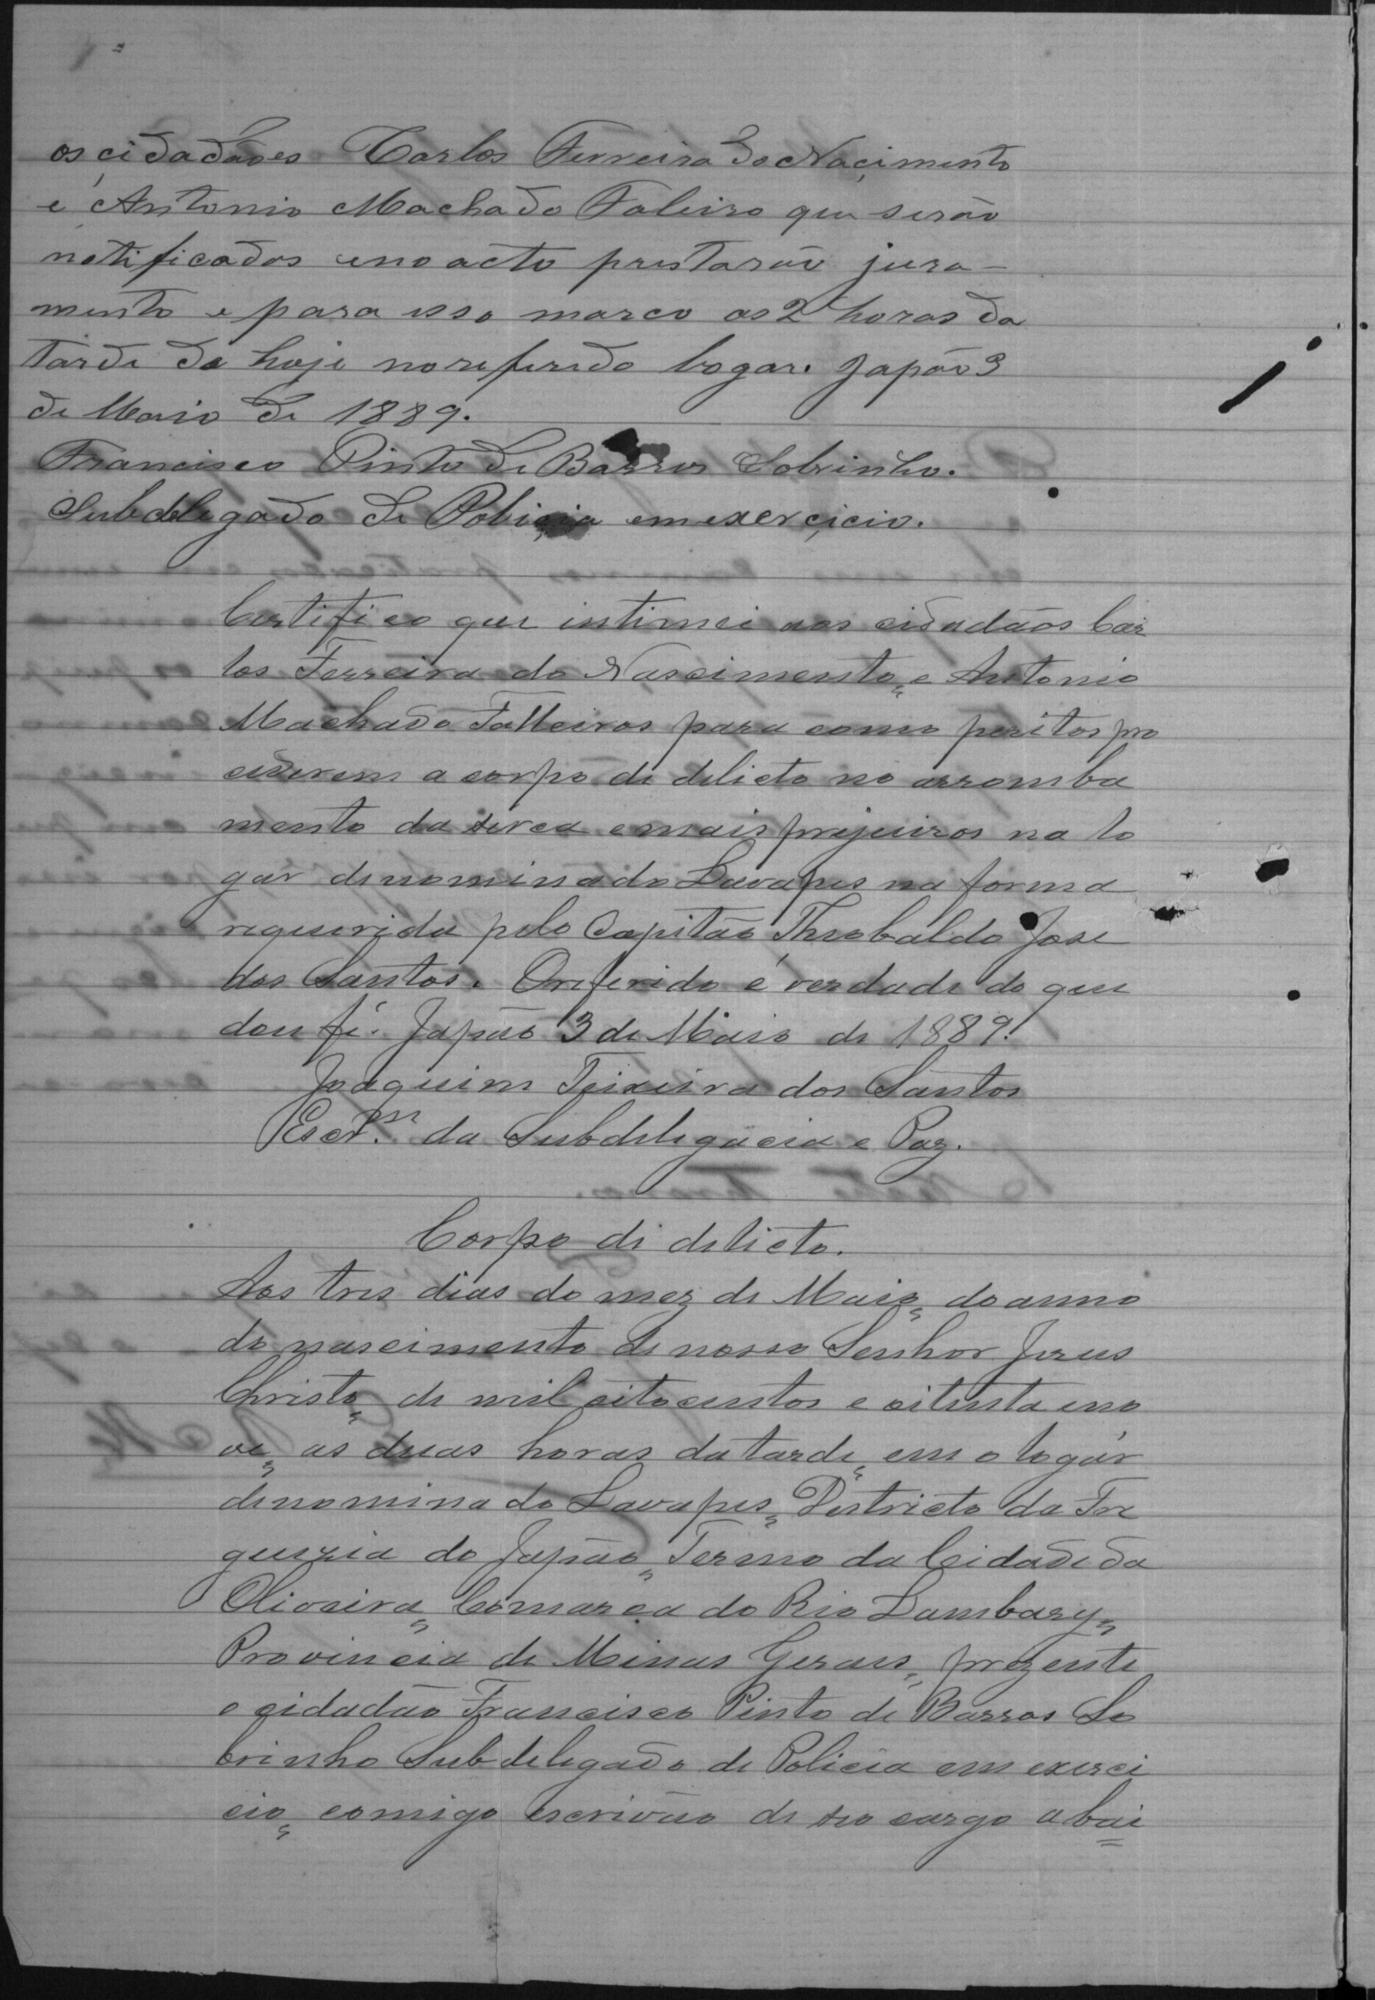 os cidadães Carlos Ferreira do Nacimento
e Antonio Machado Faleiro que serão
notificados e no acto prestarão jura-
mento e para isso marco as 2 horas da
tarde de hoje no referido logar. Japão 3
de Maio de 1889.
Francisco Pinto de Barros Sobrinho.
Subdelegado de Policia em exercicio.
Certifico que intimei aos cidadãos Car
los Ferreira do Nascimento, e Antonio
Machado Falleiros para como peritos pro
cederem a corpo de delicto no arromba
mento da serca e mais prejuizos na lo
gar denominado Lavapes na forma
requerida pelo Capitão Theobaldo Jose
dos Santos. O referido é verdade do que
dou fé. Japão 3 de Maio de 1889.
Joaquim Teixeira dos Santos
Escr.m da Subdelegacia e Paz.
Corpo de delicto.
Aos tres dias do mez de Maio, do anno
do nascimento de nosso Senhor Jesus
Christo, de mil oitocentos e oitenta e no
ve, as duas horas da tarde, em o logár
denominado Lavapes, Districto da Fre
guezia do Japão, Termo da Cidade da
Oliveira, Comarca do Rio Lambary,
Provincia de Minas Geraes, prezente
o cidadão Francisco Pinto de Barros So
brinho Subdelegado de Policia em exerci
cio, comigo escrivão de seo cargo abai